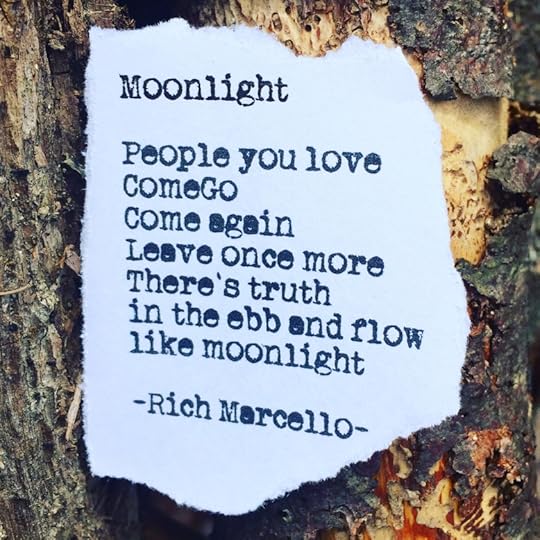 Moonlight
People you love
ComeGo
Come again
Leave once more
There's truth
in the ebb and flow
like moonlight
-Rich Marcello-